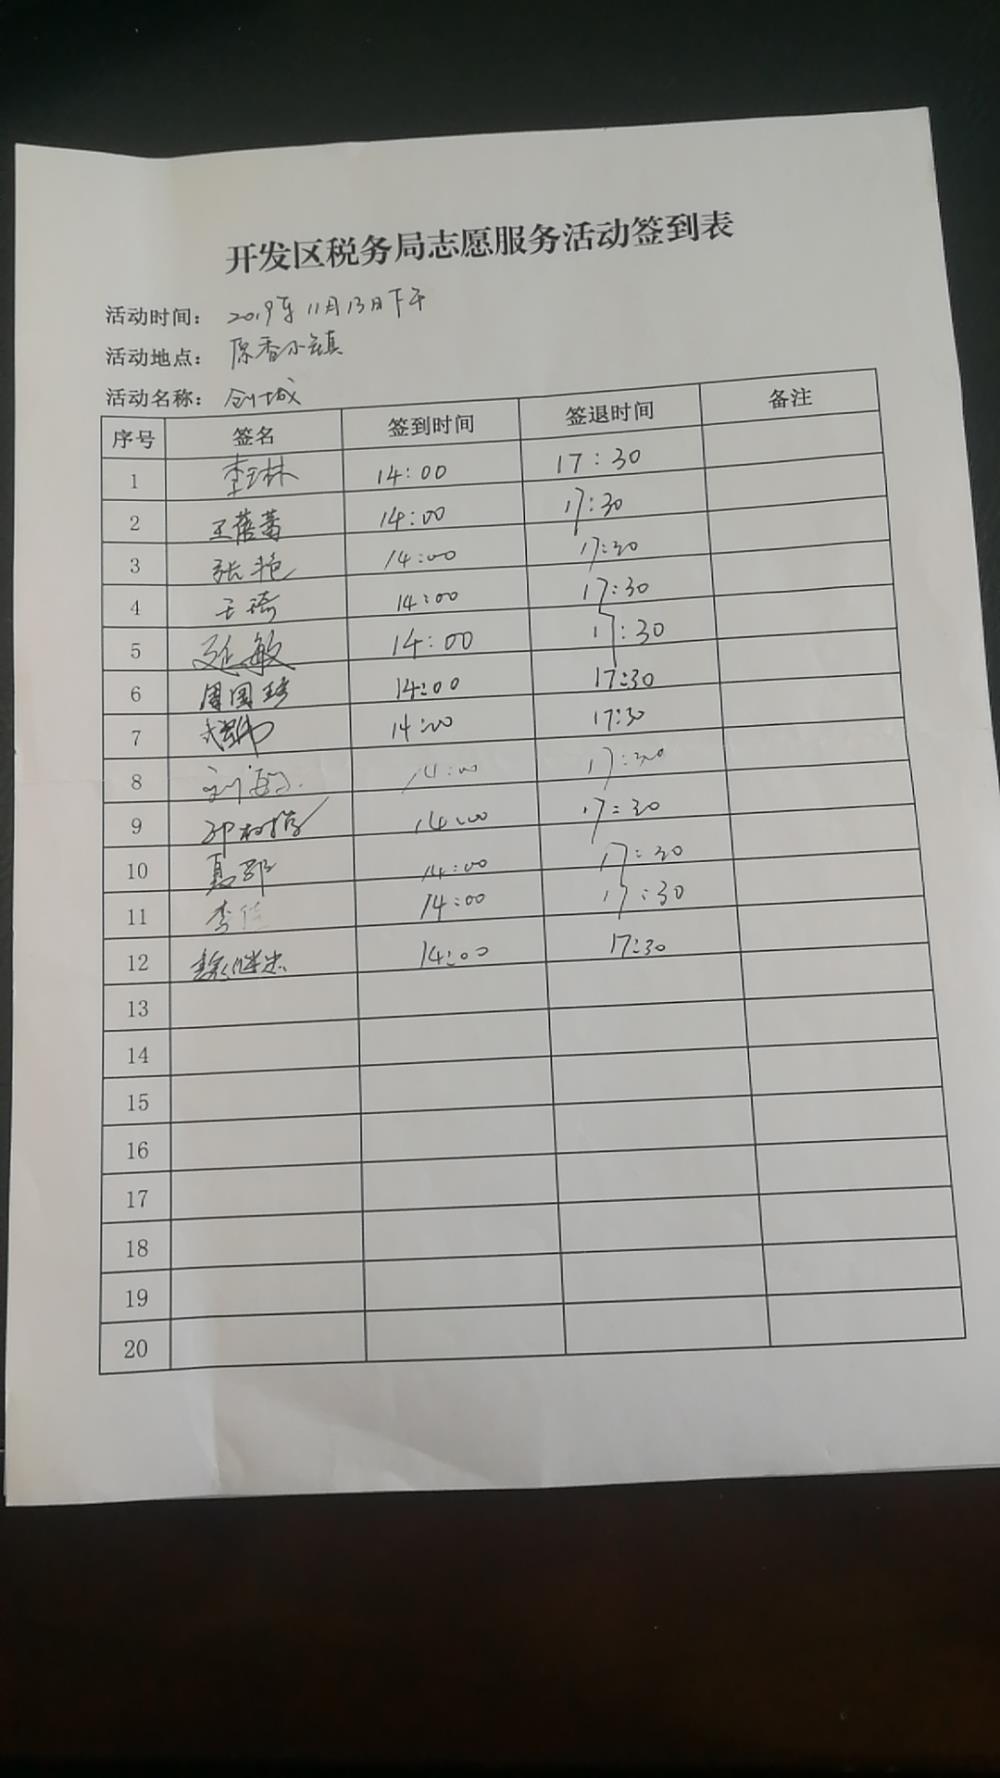 开发区税务局志愿服务活动签到表
活动时间：2019年11月13日下午
活动地点：原香小镇
活动名称：创城
序号 签名 签到时间 签退时间 备注
1 李玉林 14:00 17:30
2 王蓓蕾 14:00 17:30
3 张艳 14:00 17:30
4 王琦 14:00 17:30
5 延敏 14:00 17:30
6 周国珍 14:00 17:30
7 14:00 17:30
8 14:00 17:30
9 14:00 17:30
10 14:00 17:30
11 李佳 14:00 17:30
12 魏继忠 14:00 17:30
13
14
15
16
17
18
19
20